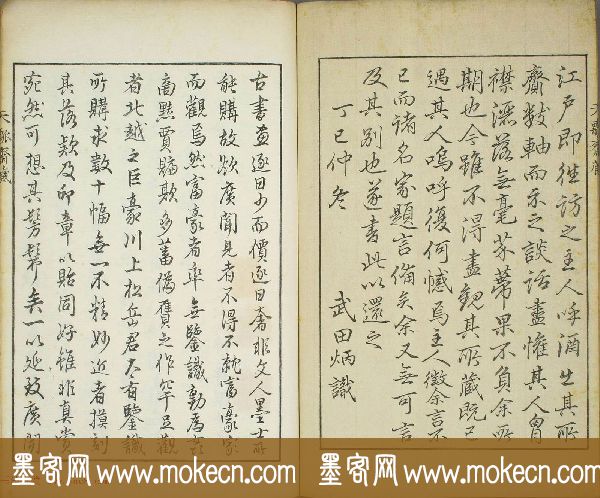 江戶即往訪之主人呼酒出其所
齋數軸而示之談話盡懽其人胷
襟洒落無毫芥蔕果不負余所
期也今雖不得盡観其所藏既已
遇其人嗚呼復何憾焉主人徵余言不
已而諸名家題言備矣余又無可言
及其別也遂書此以還之
丁巳仲冬
武田炳識
古書畫逐日少而價逐日奢非文人墨士所
能購故欲廣聞見者不得不就富豪家
而觀焉然富豪者率無鑒識動爲
商點賈賺欺多蓄僞贋之作罕足觀
者北越之巨豪川上松岳君大有鑒識
所購求數十幅無一不精妙近者摸刻
其落欵及印章以貽同好雖非真賞
宛然可想其髣髴矣一以延致廣聞
墨客网
www.mokecn.com
墨客网
www.mokecn.com